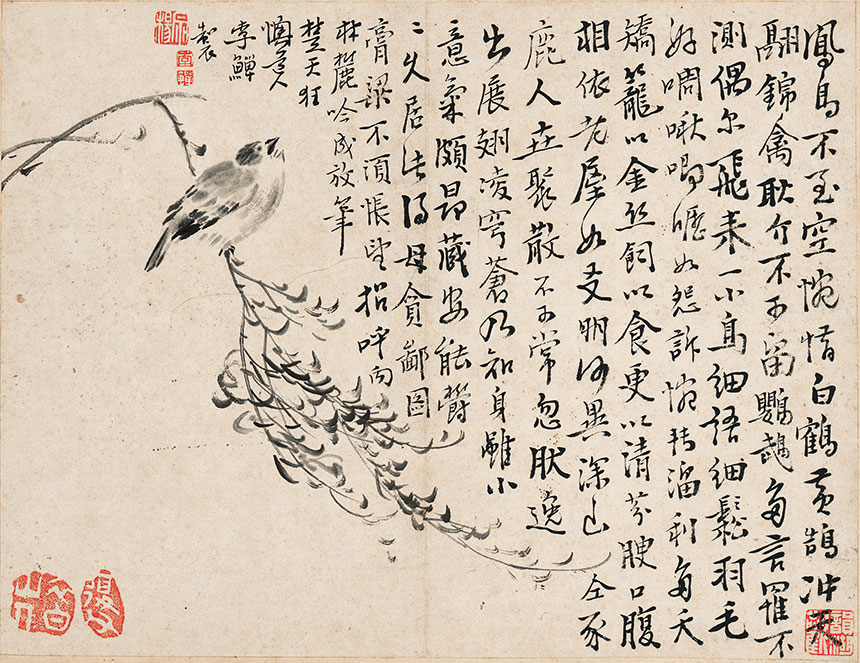 鳳鳥不至空惋惜白鶴黃鵠沖天
翮錦禽耿介不可留鸚鵡多言羅不
測偶尔飛来一小鳥細語細鬆羽毛
好啁啾鳴咽如怨訴惋轉溜利多夭
矯籠以金丝飼以食更以清芬腴口腹
相依老屋如友朋何異深山仝豕
鹿人在聚散不可常忽肰逸
出展翅凌穹蒼乃知身雖小
意氣頗昂藏安能欝
〻久居此得毋貪鄙圖
膏粱不須悵望招呼向
林麓吟成放筆
楚天狂
懊道人
李鱓
製